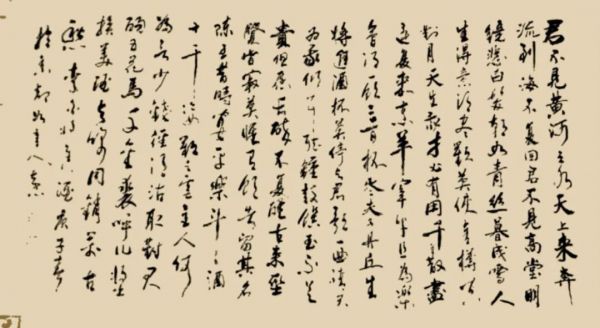 君不見黄河之水天上来奔
流到海不复回君不見高堂明
鏡悲白髮朝如青丝暮成雪人
生得意須尽歡莫使金樽空
對月天生我才必有用千金散盡
还复来烹羊宰牛且為樂
會須一飲三百杯岑夫子丹丘生
將進酒杯莫停与君歌一曲請君
为我傾耳听鐘鼓饌玉不足
貴但愿長醉不复醒古来聖
賢皆寂寞惟有飲者留其名
陈王昔時宴平樂斗酒
十千恣歡謔主人何
為言少錢徑須沽取對君
酌五花馬千金裘呼儿將出
換美酒与尔同銷万古
愁李白將進酒庚子春
於京